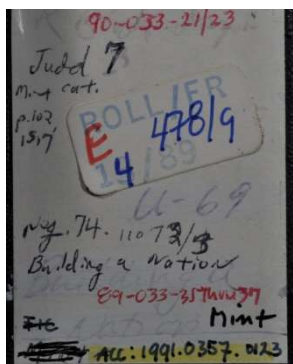 90-033-21/23
Judd 7
Mint cat.
p.102
ROLL/ER
E 478/9
4 /89
U-69
Neg. 74.
Building a Nation
89-033-35 Thru 37
Mint
ACC: 1991.0357.0123